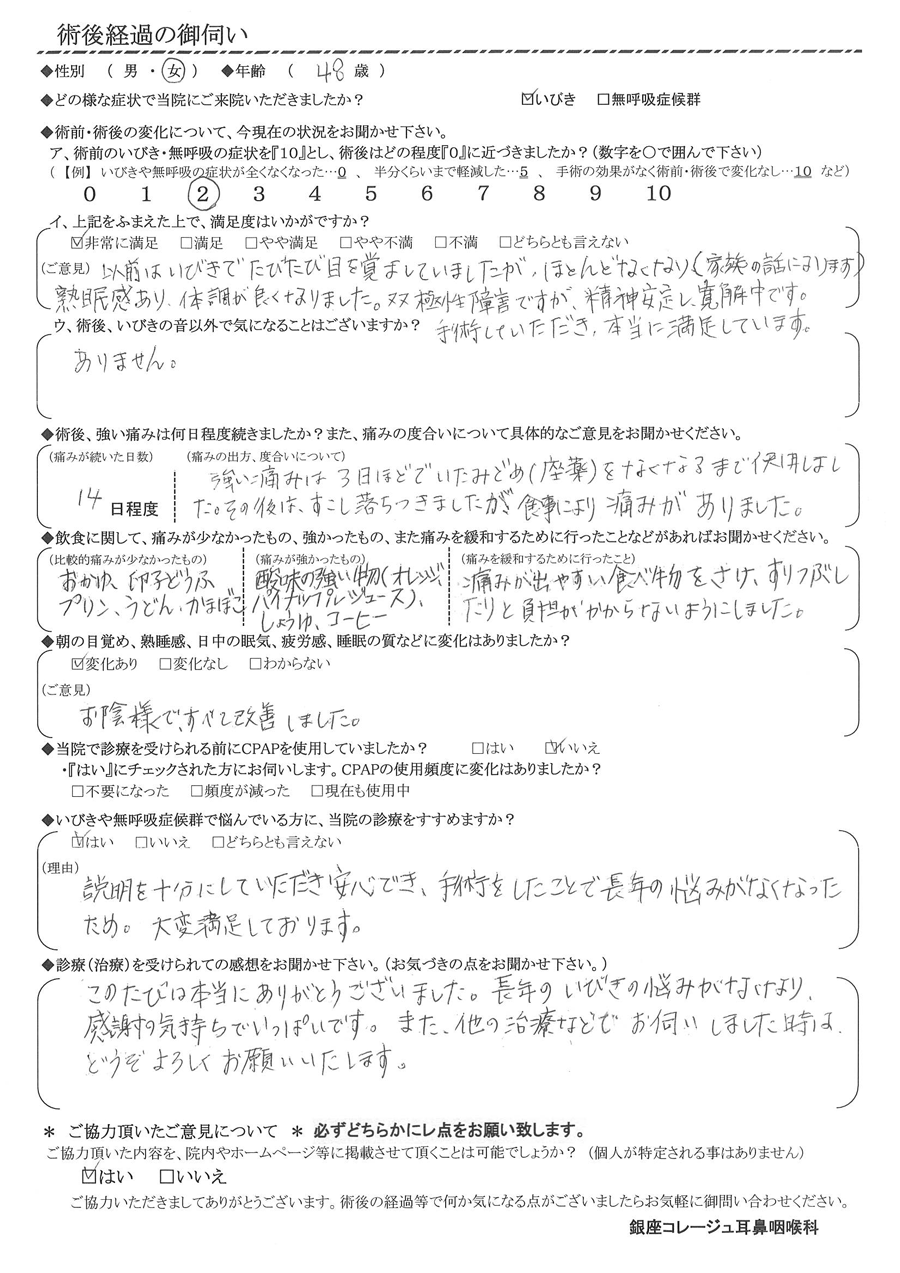 術後経過の御伺い
◆性別 ( 男 ・ 女 ) ◆年齢 ( 48 歳 )
◆どの様な症状で当院にご来院いただきましたか? ☑いびき □無呼吸症候群
◆術前・術後の変化について、今現在の状況をお聞かせ下さい。
ア、術前のいびき・無呼吸の症状を『10』とし、術後はどの程度『0』に近づきましたか?(数字を〇で囲んで下さい)
(【例】いびきや無呼吸の症状が全くなくなった…0 、 半分くらいまで軽減した…5 、 手術の効果がなく術前・術後で変化なし…10 など)
0 1 2 3 4 5 6 7 8 9 10
イ、上記をふまえた上で、満足度はいかがですか?
☑非常に満足 □満足 □やや満足 □やや不満 □不満 □どちらとも言えない
(ご意見) 以前はいびきでたびたび目を覚ましていましたが、ほとんどなくなり(家族の話になります)
熟眠感あり、体調が良くなりました。双極性障害ですが、精神安定し、寛解中です。
ウ、術後、いびきの音以外で気になることはございますか? 手術していただき、本当に満足しています。
ありません。
◆術後、強い痛みは何日程度続きましたか?また、痛みの度合いについて具体的なご意見をお聞かせください。
(痛みが続いた日数) (痛みの出方、度合いについて)
強い痛みは3日ほどでいたみどめ(座薬)をなくなるまで使用しまし
14 日程度 た。その後は、すこし落ちつきましたが、食事により痛みがありました。
◆飲食に関して、痛みが少なかったもの、強かったもの、また痛みを緩和するために行ったことなどがあればお聞かせください。
(比較的痛みが少なかったもの) (痛みが強かったもの) (痛みを緩和するために行ったこと)
おかゆ、卵子どうふ 酸味の強い物(オレンジ、 痛みが出やすい食べ物をさけ、すりつぶし
プリン、うどん、かまぼこ パイナップルジュース)、 たりと負担がかからないようにしました。
しょうゆ、コーヒー
◆朝の目覚め、熟睡感、日中の眠気、疲労感、睡眠の質などに変化はありましたか?
☑変化あり □変化なし □わからない
(ご意見)
お陰様で、すべて改善しました。
◆当院で診療を受けられる前にCPAPを使用していましたか? □はい ☑いいえ
・『はい』にチェックされた方にお伺いします。CPAPの使用頻度に変化はありましたか?
□不要になった □頻度が減った □現在も使用中
◆いびきや無呼吸症候群で悩んでいる方に、当院の診療をすすめますか?
☑はい □いいえ □どちらとも言えない
(理由)
説明を十分にしていただき安心でき、手術をしたことで長年の悩みがなくなった
ため。 大変満足しております。
◆診療(治療)を受けられての感想をお聞かせ下さい。(お気づきの点をお聞かせ下さい。)
このたびは本当にありがとうございました。長年のいびきの悩みがなくなり、
感謝の気持ちでいっぱいです。また、他の治療などでお伺いしました時は、
どうぞよろしくお願いいたします。
＊ ご協力頂いたご意見について ＊ 必ずどちらかにレ点をお願い致します。
ご協力頂いた内容を、院内やホームページ等に掲載させて頂くことは可能でしょうか? (個人が特定される事はありません)
☑はい □いいえ
ご協力いただきましてありがとうございます。術後の経過等で何か気になる点がございましたらお気軽に御問い合わせください。
銀座コレージュ耳鼻咽喉科